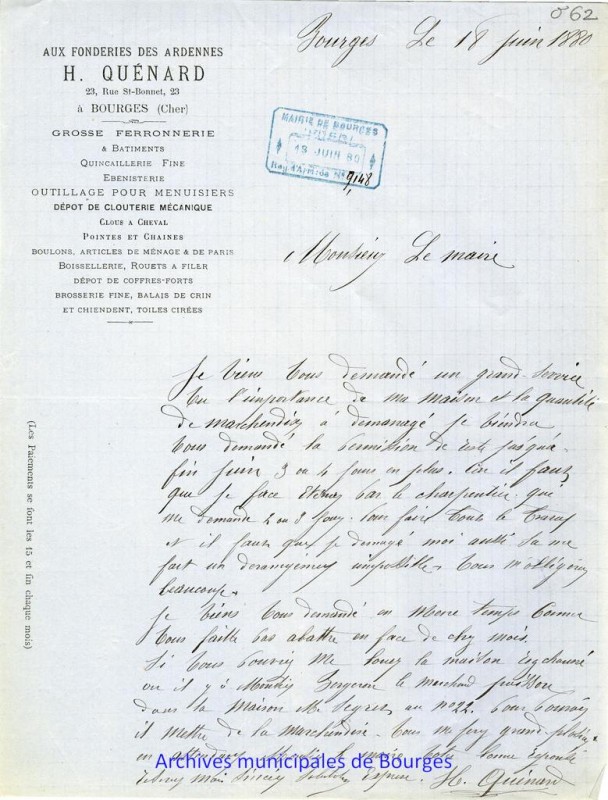 862
AUX FONDERIES DES ARDENNES
H. QUÉNARD
23, Rue St-Bonnet, 23
à BOURGES (Cher)
GROSSE FERRONNERIE
& BATIMENTS
QUINCAILLERIE FINE
EBENISTERIE
OUTILLAGE POUR MENUISIERS
DÉPOT DE CLOUTERIE MÉCANIQUE
CLOUS A CHEVAL
POINTES ET CHAINES
BOULONS, ARTICLES DE MÉNAGE & DE PARIS
BOISSELLERIE, ROUETS A FILER
DÉPOT DE COFFRES-FORTS
BROSSERIE FINE, BALAIS DE CRIN
ET CHIENDENT, TOILES CIRÉES
(Les Paiements se font les 15 et fin chaque mois)
Bourges Le 18 juin 1880
MAIRIE DE BOURGES
(CHER)
JUIN 80
9148
Monsieur Le maire
Je viens vous demandé un grand service
vu l'importance de ma maison et la quantité
de marchendise à demenagé je viendrai
vous demandé la permission de resté jusqua
fin juin 3 ou 4 jours en plus. Car il faut
que je face par le charpentier qui
me demande 2 ou 3 jours pour faire tout le travail
et il faut que je demenagé moi aussi sa me
fait un impossible. Vous m'obligerez
beaucoup.
Je viens vous demandé en meme temps comme
vous faite pas abattre en face de chez moi.
Si vous pouvriez me louez la maison
ou il y a Bergeron le marchand
dans la maison Mr Segret au no 22. pour pouvoir
il mettre de la marchendise. Vous me ferez grand
en Monsieur le maire votre bonne
H. Quénard
Archives municipales de Bourges